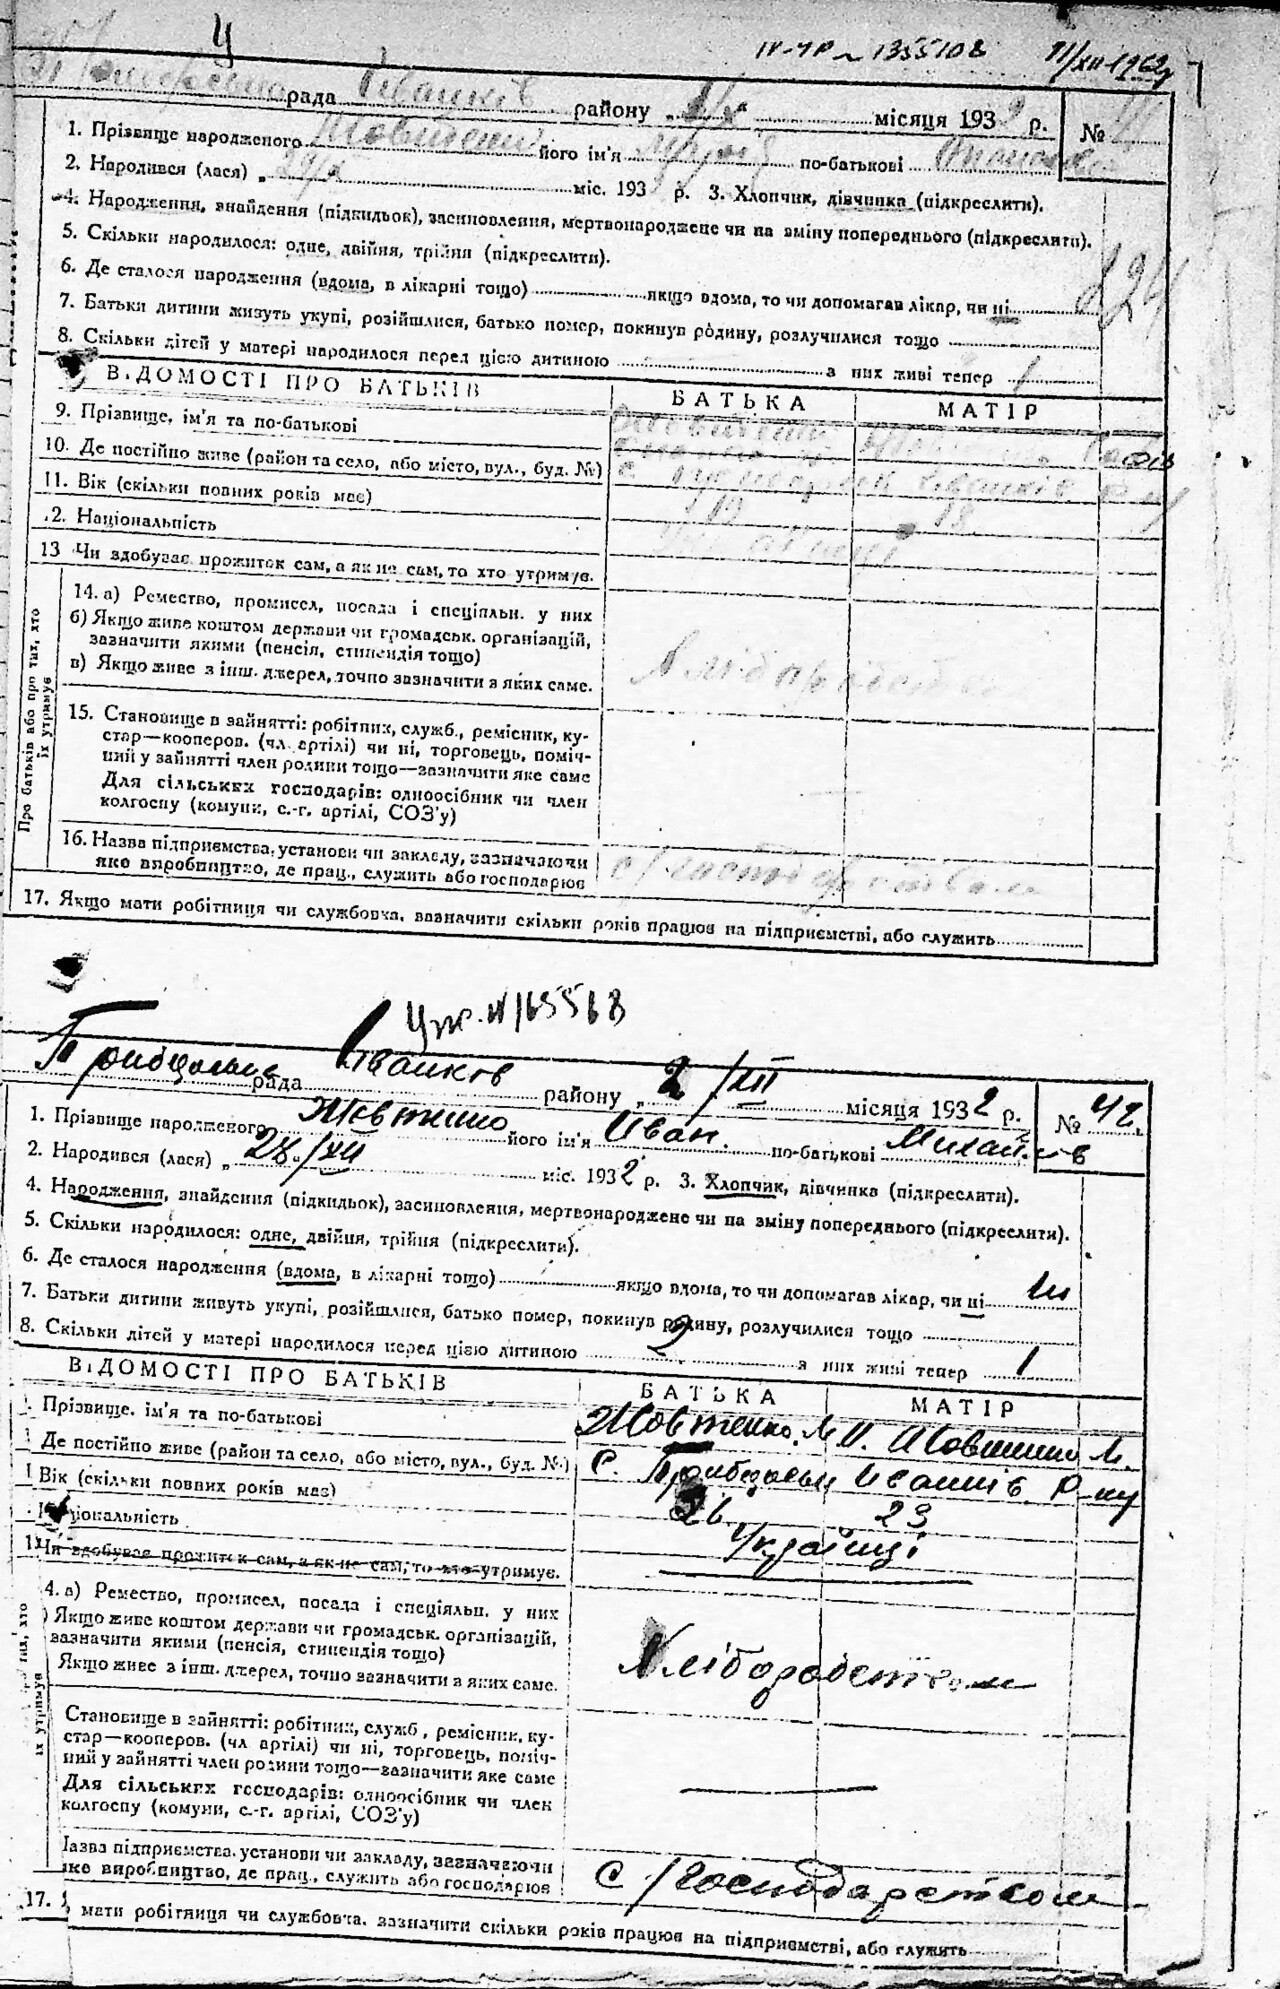 У
IV-УР № 1355108 11/XII-1962р
рада Іванків району місяця 193 р. №
1. Прізвище народженого його ім'я по-батькові
2. Народився (лася) „ 29/X міс. 193 р. 3. Хлопчик, дівчинка (підкреслити).
4. Народження, знайдення (підкидьок), засиновлення, мертвонароджене чи на зміну попереднього (підкреслити).
5. Скільки народилося: одне, двійня, трійня (підкреслити).
6. Де сталося народження (вдома, в лікарні тощо) якщо вдома, то чи допомагав лікар, чи ні
7. Батьки дитини живуть укупі, розійшлися, батько помер, покинув родину, розлучилися тощо
8. Скільки дітей у матері народилося перед цією дитиною з них живі тепер 1
ВІДОМОСТІ ПРО БАТЬКІВ БАТЬКА МАТІР
9. Прізвище, ім'я та по-батькові
10. Де постійно живе (район та село, або місто, вул., буд. №) Іванків р-ну
11. Вік (скільки повних років має) 18
12. Національність
13 Чи здобуває прожиток сам, а як не сам, то хто утримує.
Про батьків або про тих, хто їх утримує
14. а) Ремество, промисел, посада і спеціяльн. у них
б) Якщо живе коштом держави чи громадськ. організацій,
зазначити якими (пенсія, стипендія тощо)
в) Якщо живе з інш. джерел, точно зазначити з яких саме.
Хліборобством
15. Становище в зайнятті: робітник, служб., ремісник, ку-
стар—кооперов. (чл. артілі) чи ні, торговець, поміч-
ний у зайнятті член родини тощо—зазначити яке саме
Для сільських господарів: одноосібник чи член
колгоспу (комуни, с.-г. артілі, СОЗ'у)
16. Назва підприємства, установи чи закладу, зазначаючи
яке виробництво, де прац., служить або господарює
с/господарством
17. Якщо мати робітниця чи службовка, зазначити скільки років працює на підприємстві, або служить
рада Іванков району „ 2/XII місяця 1932 р. № 42.
1. Прізвище народженого його ім'я Иван. по-батькові Михайлов
2. Народився (лася) „ 28/XII міс. 1932 р. 3. Хлопчик, дівчинка (підкреслити).
4. Народження, знайдення (підкидьок), засиновлення, мертвонароджене чи на зміну попереднього (підкреслити).
5. Скільки народилося: одне, двійня, трійня (підкреслити).
6. Де сталося народження (вдома, в лікарні тощо) якщо вдома, то чи допомагав лікар, чи ні ні
7. Батьки дитини живуть укупі, розійшлися, батько помер, покинув родину, розлучилися тощо
8. Скільки дітей у матері народилося перед цією дитиною 2 з них живі тепер 1
ВІДОМОСТІ ПРО БАТЬКІВ БАТЬКА МАТІР
Прізвище, ім'я та по-батькові Жовтенко. М
Де постійно живе (район та село, або місто, вул., буд. №) С. Іванків Р-ну
Вік (скільки повних років має) 26 23
Національність Українці
Чи здобуває прожиток сам, а як не сам, то хто утримує.
тих, хто їх утримує
4. а) Ремество, промисел, посада і спеціяльн. у них
) Якщо живе коштом держави чи громадськ. організацій,
зазначити якими (пенсія, стипендія тощо)
Якщо живе з інш. джерел, точно зазначити з яких саме.
Хліборобством
Становище в зайнятті: робітник, служб., ремісник, ку-
стар—кооперов. (чл артілі) чи ні, торговець, поміч-
ний у зайнятті член родини тощо—зазначити яке саме
Для сільських господарів: одноосібник чи член
колгоспу (комуни, с.-г. артілі, СОЗ'у)
Назва підприємства, установи чи закладу, зазначаючи
яке виробництво, де прац., служить або господарює
С/господарством
17. мати робітниця чи службовка, зазначити скільки років працює на підприємстві, або служить